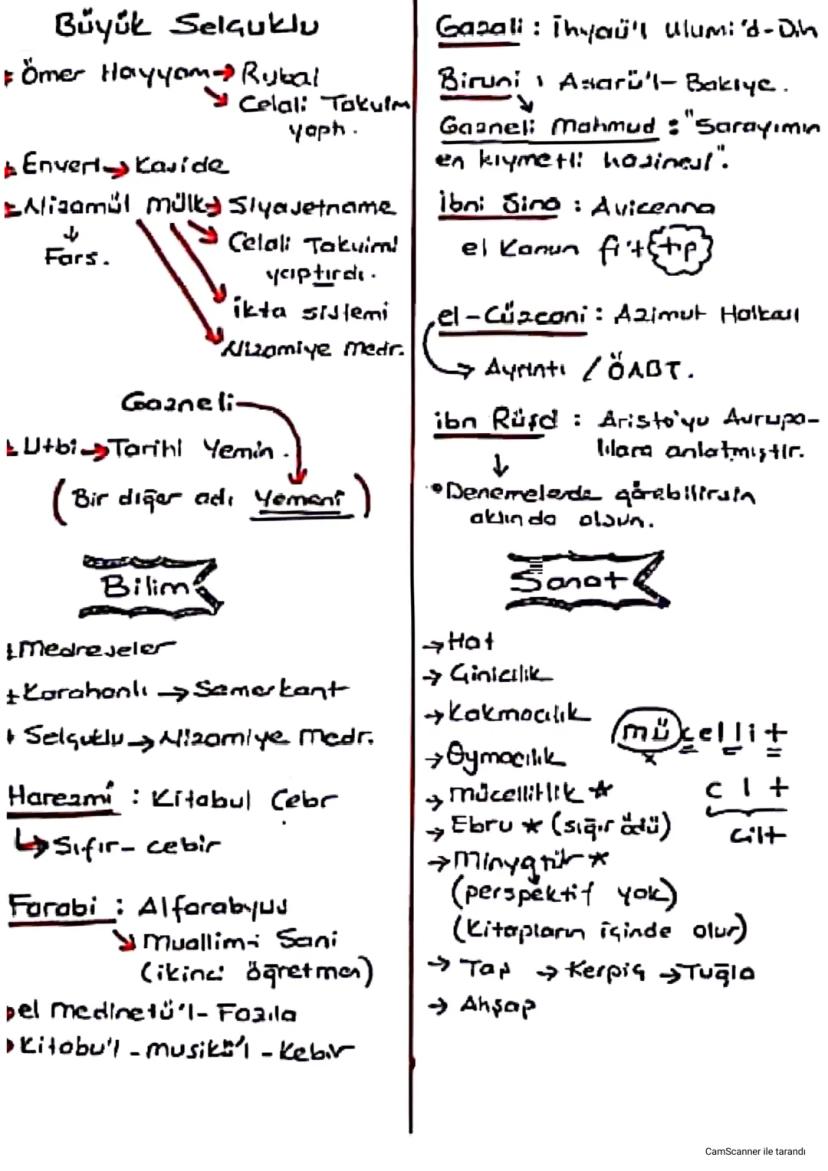 Büyük Selçuklu
Ömer Hayyam → Rubai
Celali Takvim
yaptı.
Enveri → Kaside
Nizamül mülk → Siyasetname
Fars.
Celali Takvimi
yaptırdı.
ikta sistemi
Nizamiye medr.
Gazneli
Utbi → Tarihi Yemin.
(Bir diğer adı Yemeni)
Bilim
Medreseler
Karahanlı → Semerkant
Selçuklu → Nizamiye medr.
Harezmi : Kitabul Cebr
Sıfır - cebir
Farabi : Alfarabyus
Muallim-i Sani
(ikinci öğretmen)
el medinetü'l - Fazıla
Kitabu'l - musikü'l - Kebir
Gazali : İhyaü'l Ulumi'd - Din
Biruni : Asarü'l - Bakiye.
Gazneli Mahmud : "Sarayımın
en kıymetli hazinesi".
İbni Sina : Avicenna
el Kanun fi't tıp
el - Cüzcani : Azimut Halkası
→ Ayrıntı / ÖABT.
ibn Rüşd : Aristo'yu Avrupa-
lılara anlatmıştır.
• Denemelerde görebilirsin
aklında olsun.
Sanat
→ Hat
→ Çinicilik
→ Kakmacılık
→ Oymacılık
→ mücellitlik *
→ Ebru * (sığır ödü)
→ Minyatür *
(perspektif yok)
(Kitapların içinde olur)
→ Taş → Kerpiç → Tuğla
→ Ahşap
mücellit
x
c l t
cilt
CamScanner ile tarandı